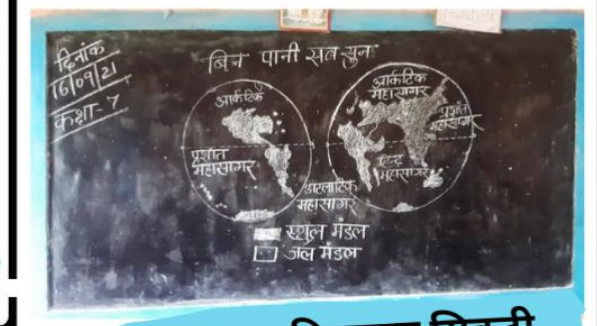 दिनांक
16/09/21
कक्षा-7
बिन पानी सब सुन
आर्कटिक
प्रशांत
महासागर
आर्कटिक
महासागर
प्रशांत
महासागर
हिन्द
महासागर
अटलांटिक
महासागर
स्थल मंडल
जल मंडल